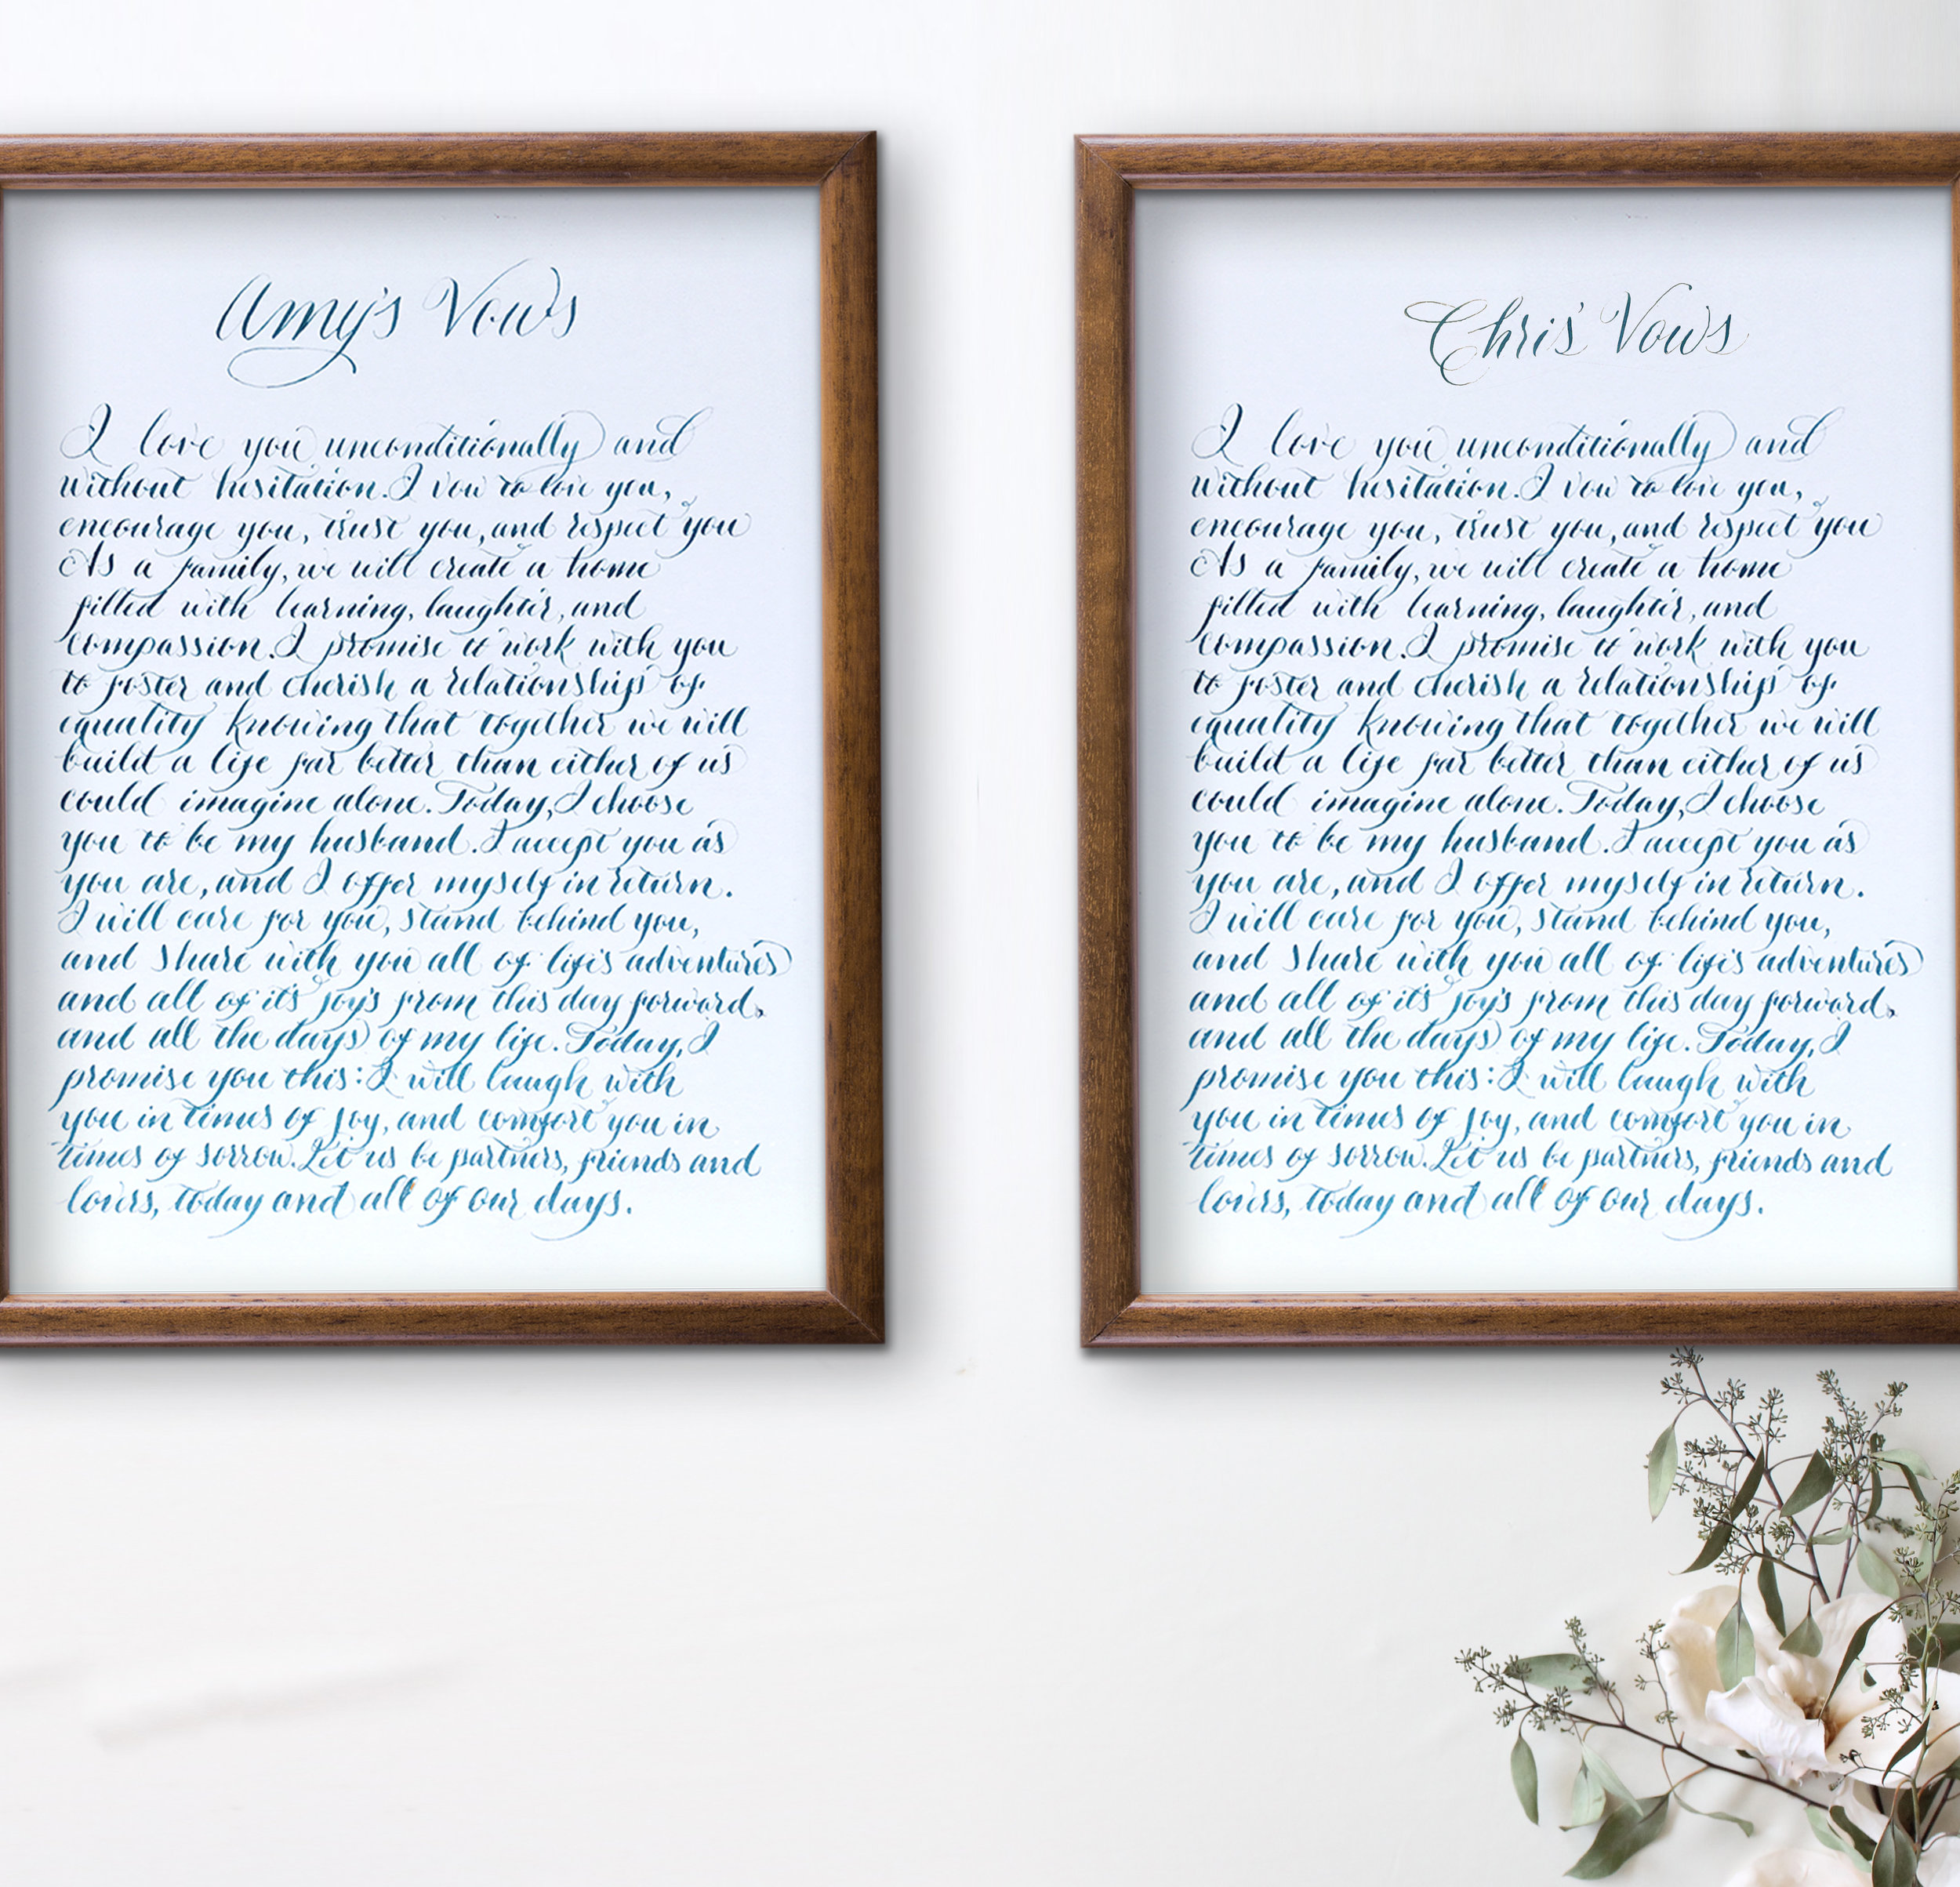 Amy's Vows
I love you unconditionally and
without hesitation. I vow to love you,
encourage you, trust you, and respect you
As a family, we will create a home
filled with learning, laughter, and
compassion. I promise to work with you
to foster and cherish a relationship of
equality knowing that together we will
build a life far better than either of us
could imagine alone. Today, I choose
you to be my husband. I accept you as
you are, and I offer myself in return.
I will care for you, stand behind you,
and share with you all of life's adventures
and all of it's joy's from this day forward,
and all the days of my life. Today, I
promise you this: I will laugh with
you in times of joy, and comfort you in
times of sorrow. Let us be partners, friends and
lovers, today and all of our days.
Chris' Vows
I love you unconditionally and
without hesitation. I vow to love you,
encourage you, trust you, and respect you
As a family, we will create a home
filled with learning, laughter, and
compassion. I promise to work with you
to foster and cherish a relationship of
equality knowing that together we will
build a life far better than either of us
could imagine alone. Today, I choose
you to be my husband. I accept you as
you are, and I offer myself in return.
I will care for you, stand behind you,
and share with you all of life's adventures
and all of it's joy's from this day forward,
and all the days of my life. Today, I
promise you this: I will laugh with
you in times of joy, and comfort you in
times of sorrow. Let us be partners, friends and
lovers, today and all of our days.